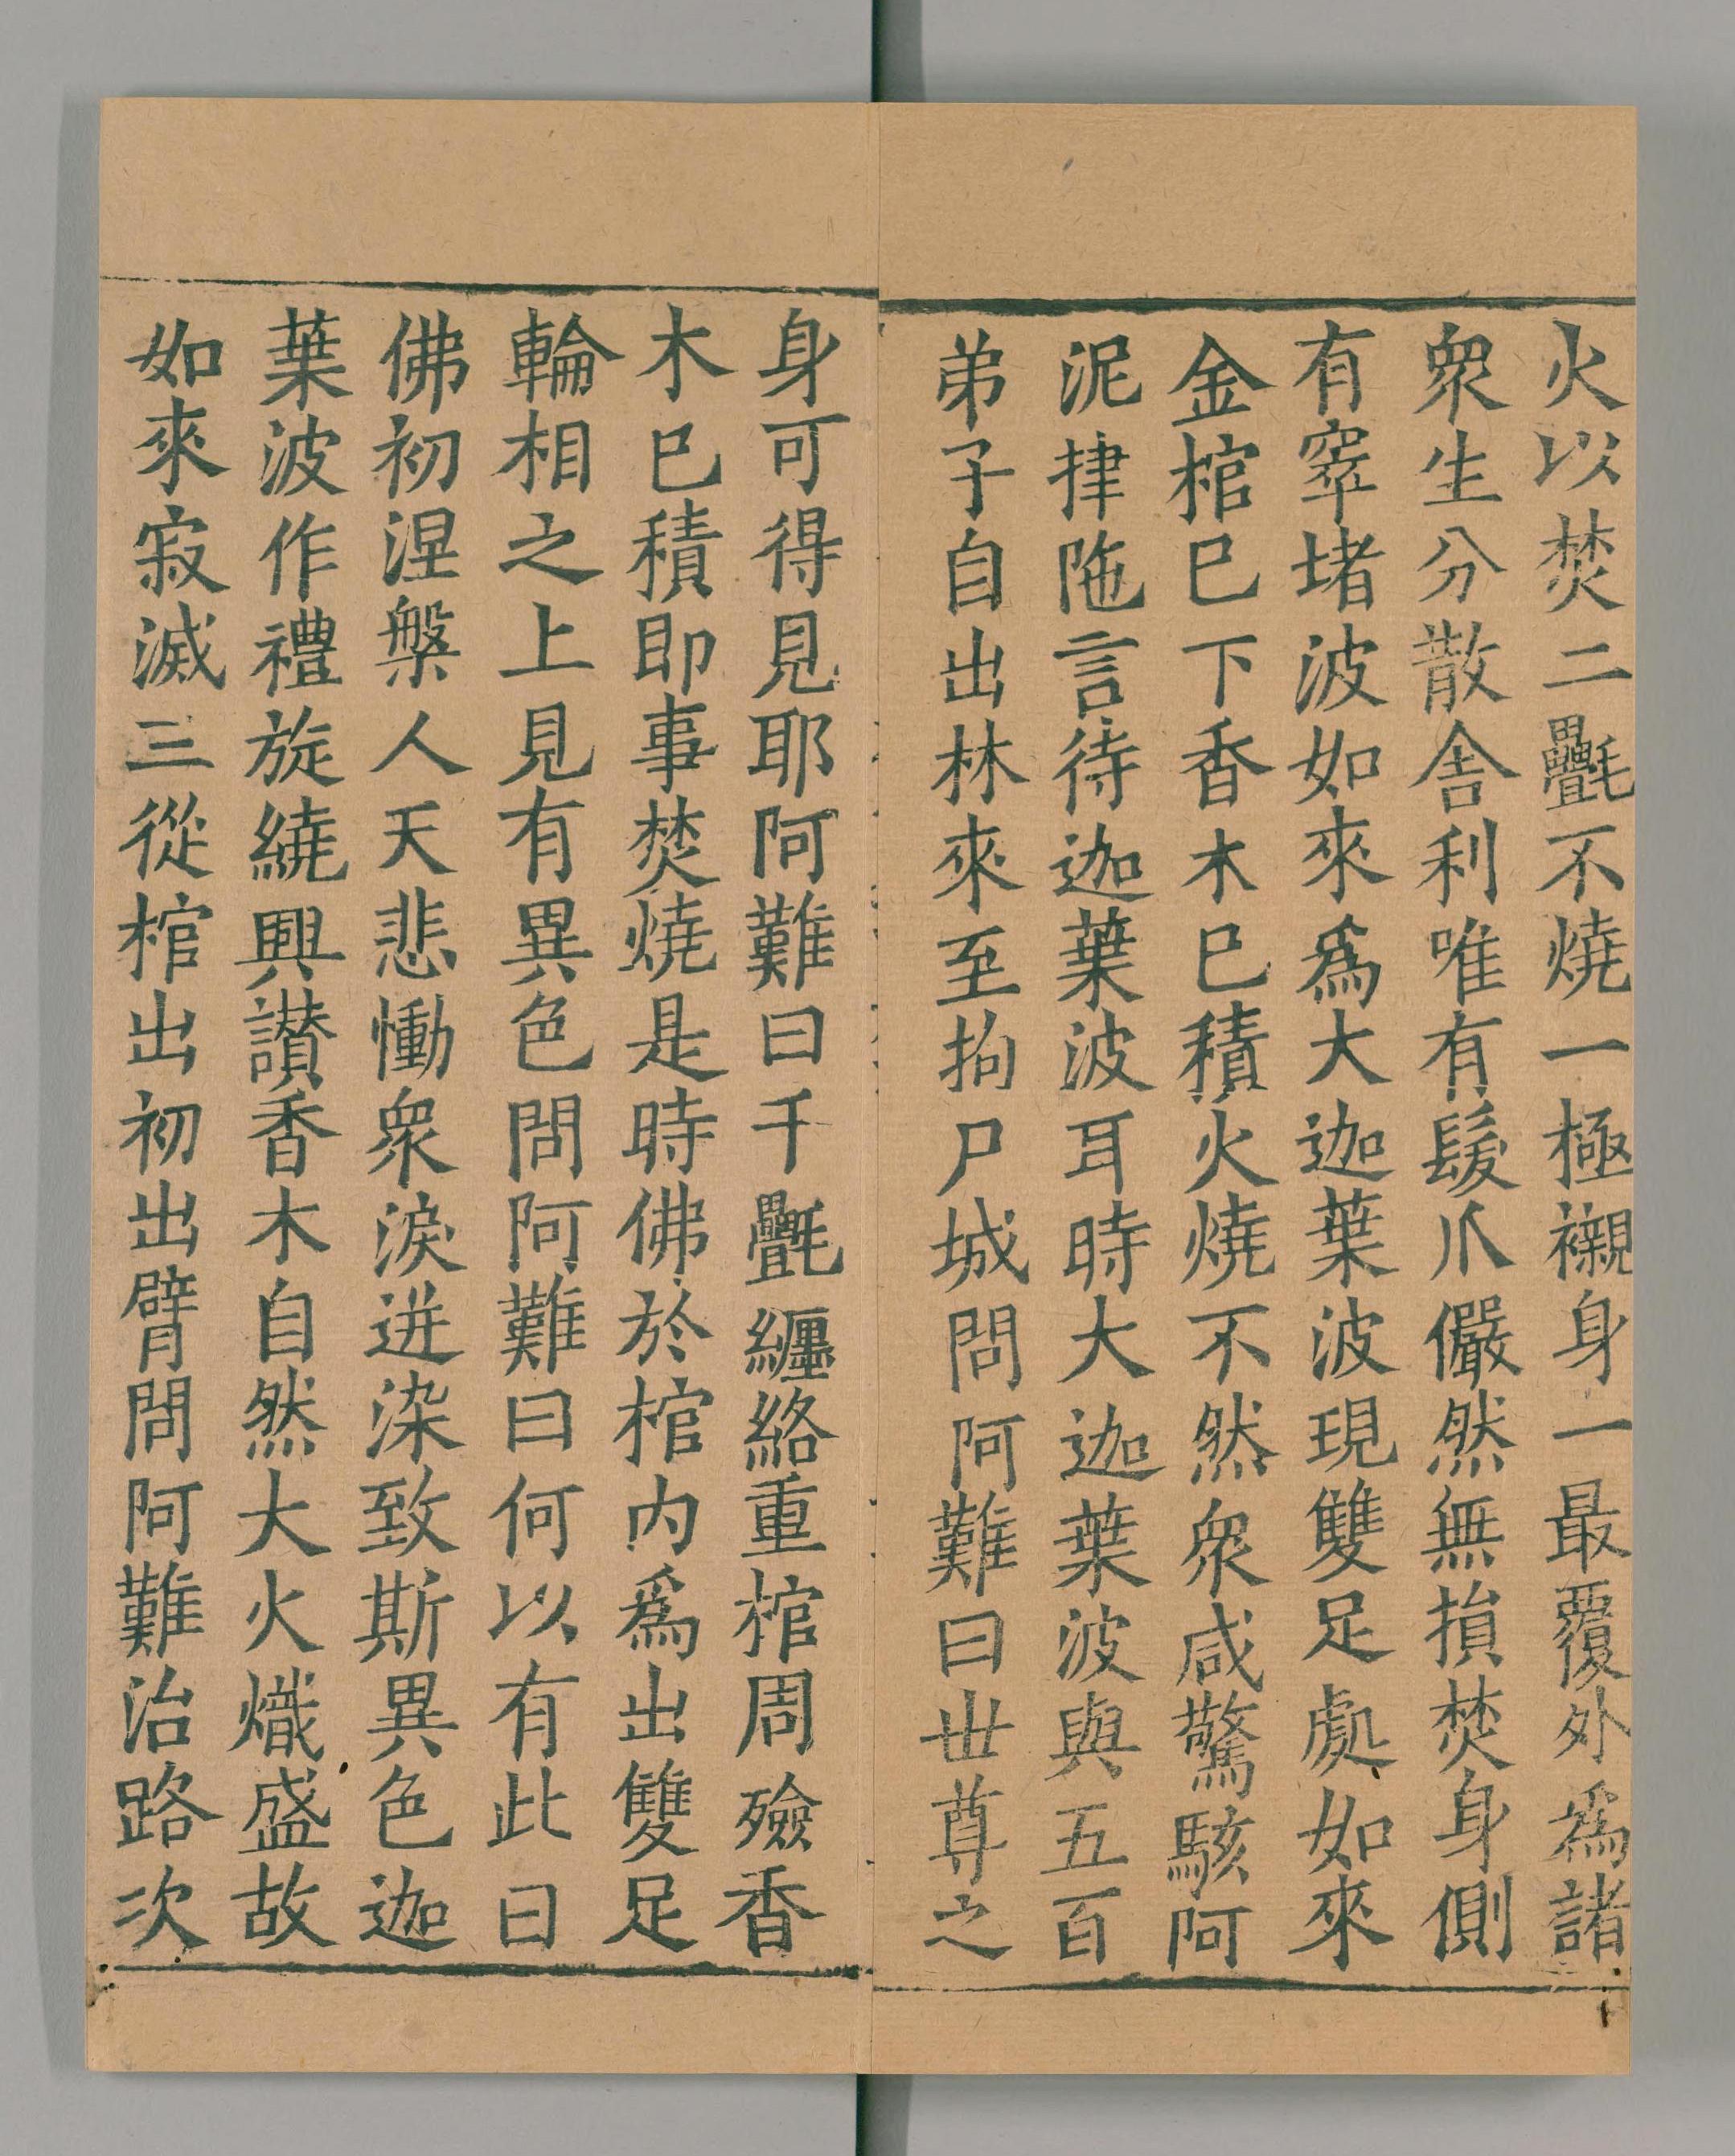 火以焚二㲲不燒一極襯身一最覆外爲諸
衆生分散舍利唯有髮爪儼然無損焚身側
有窣堵波如來爲大迦葉波現雙足處如來
金棺巳下香木巳積火燒不然衆咸驚駭阿
泥捽陁言待迦葉波耳時大迦葉波與五百
弟子自出林來至拘尸城問阿難曰世尊之
身可得見耶阿難曰千㲲纏絡重棺周殮香
木巳積即事焚燒是時佛於棺内爲出雙足
輪相之上見有異色問阿難曰何以有此曰
佛初涅槃人天悲慟衆淚迸染致斯異色迦
葉波作禮旋繞興讃香木自然大火熾盛故
如來寂滅三從棺出初出臂問阿難治路次